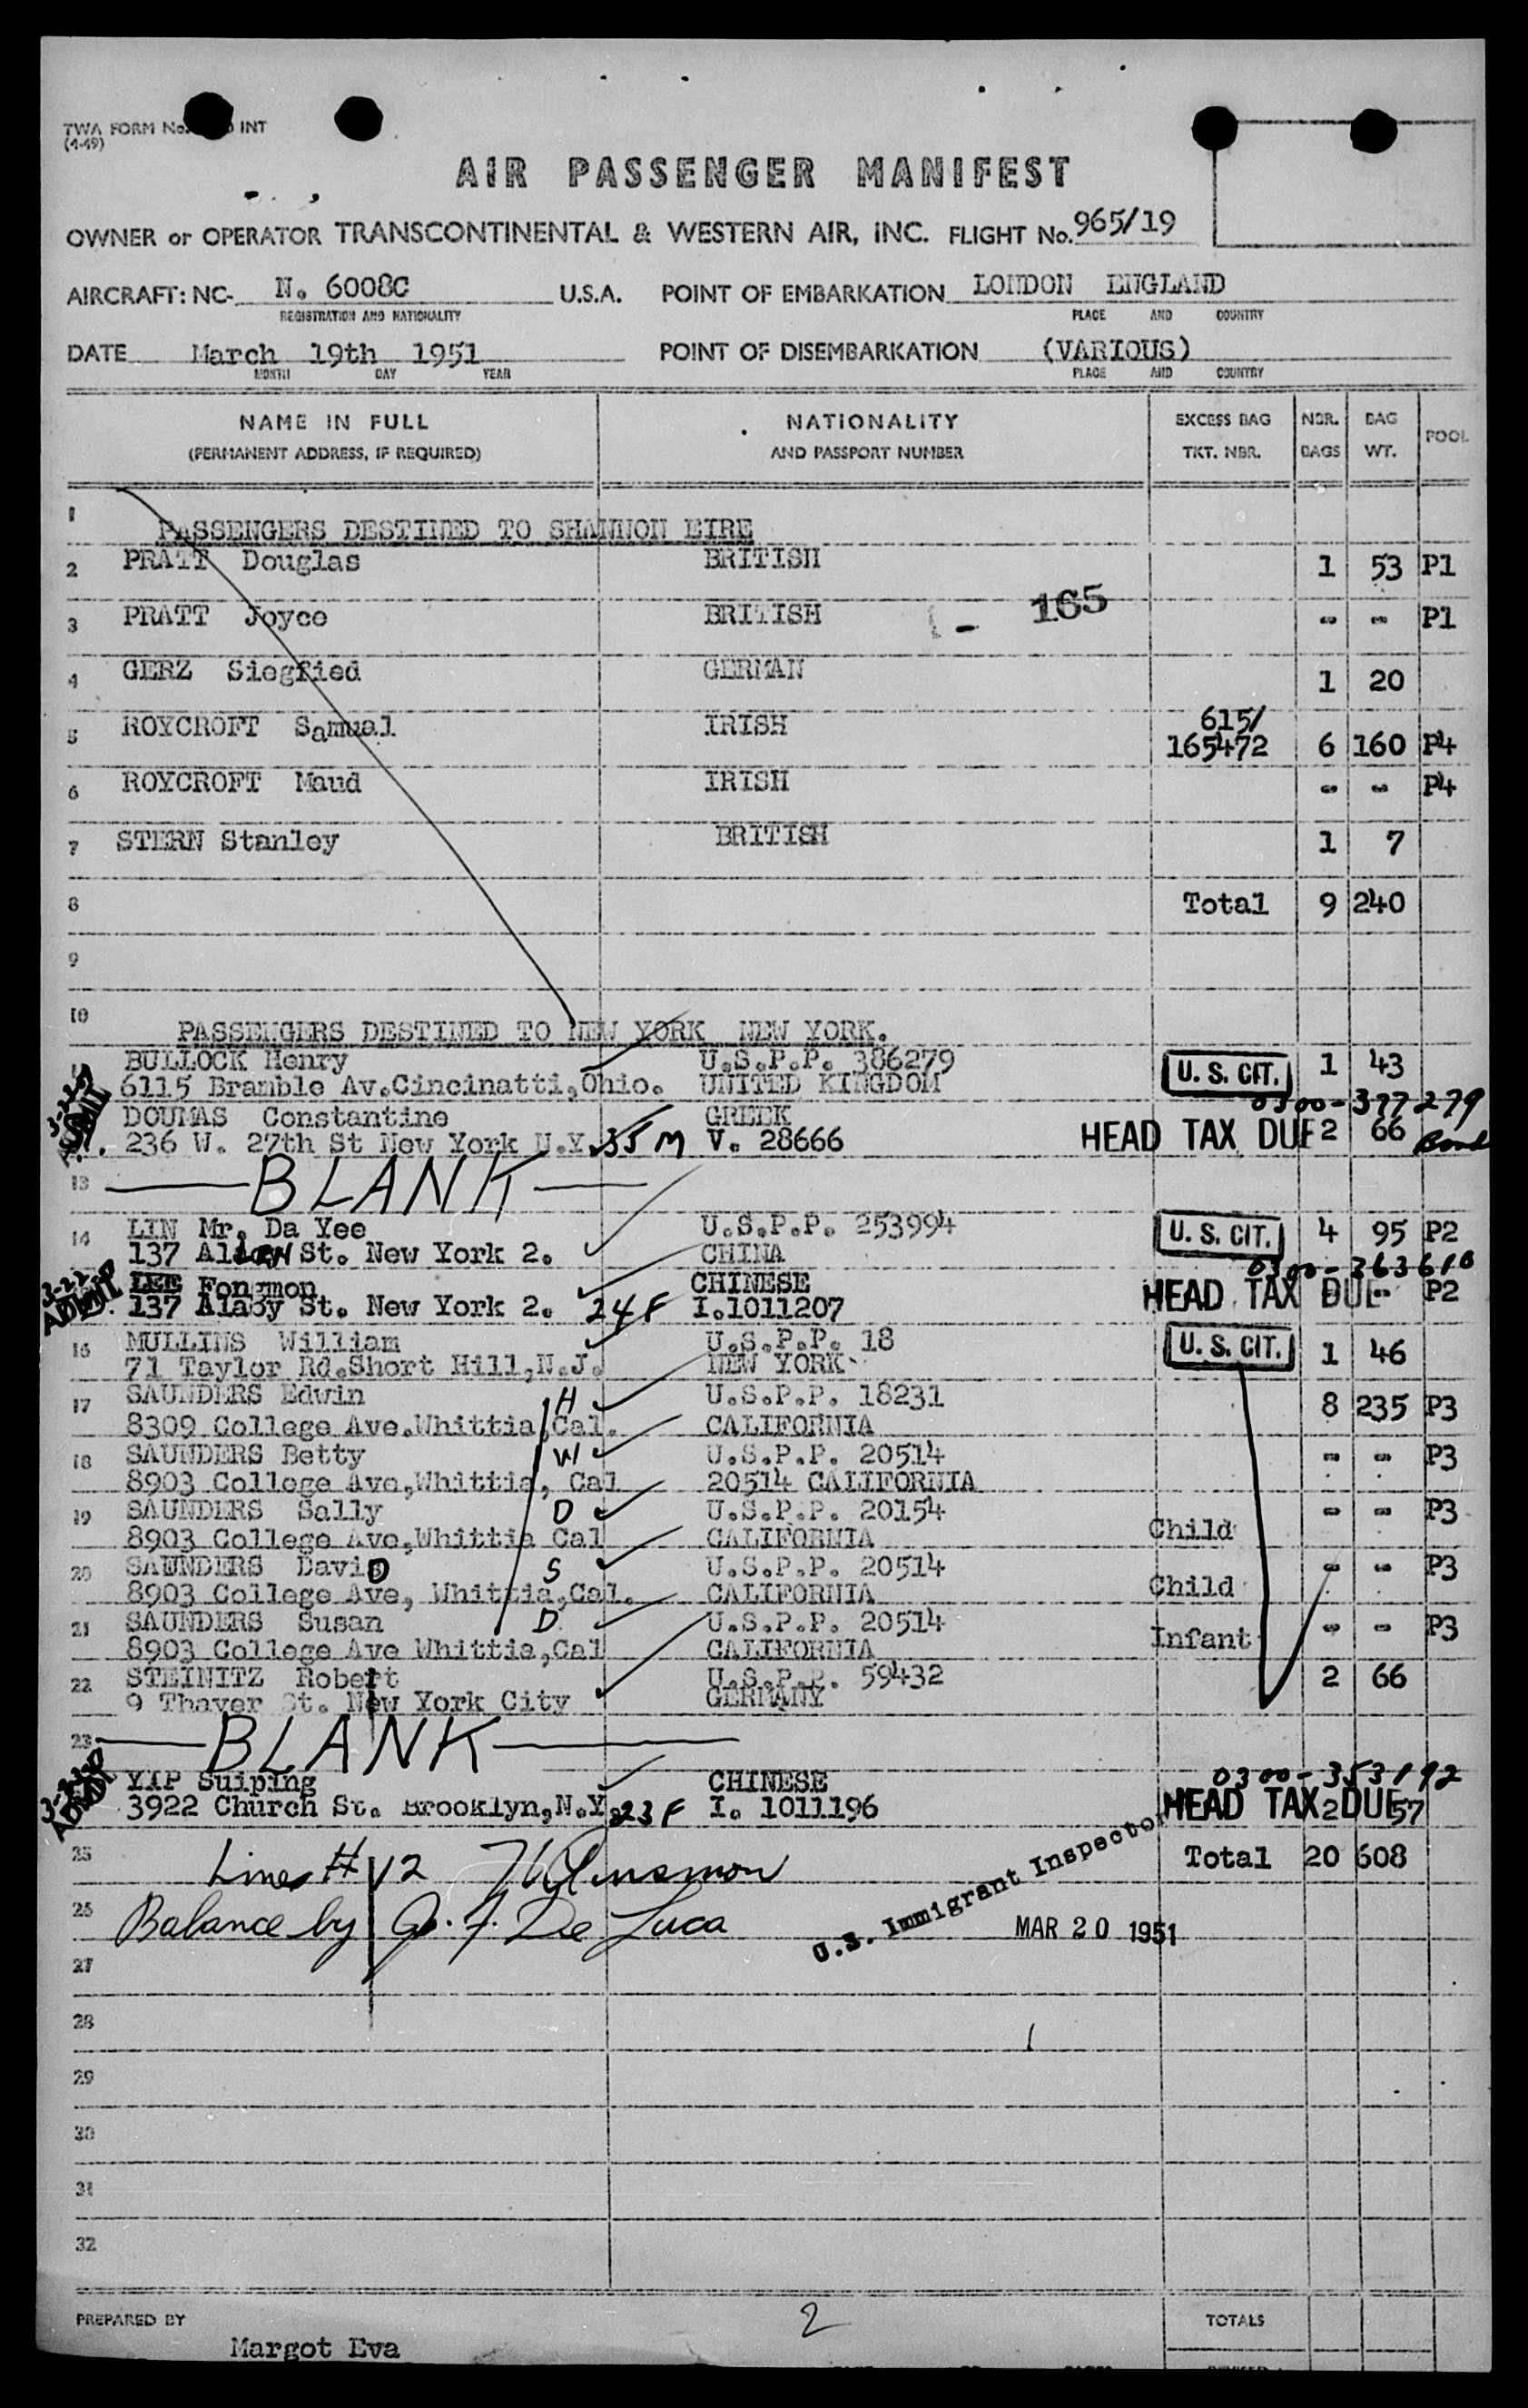 TWA FORM No. INT
(4-49)
AIR PASSENGER MANIFEST
OWNER or OPERATOR TRANSCONTINENTAL & WESTERN AIR, INC. FLIGHT No. 965/19
AIRCRAFT: NC- N. 6008C U.S.A. POINT OF EMBARKATION LONDON ENGLAND
REGISTRATION AND NATIONALITY PLACE AND COUNTRY
DATE March 19th 1951 POINT OF DISEMBARKATION (VARIOUS)
MONTH DAY YEAR PLACE AND COUNTRY
NAME IN FULL NATIONALITY EXCESS BAG NBR. BAG POOL
(PERMANENT ADDRESS, IF REQUIRED) AND PASSPORT NUMBER TKT. NBR. BAGS WT.
1 PASSENGERS DESTINED TO SHANNON EIRE
2 PRATT Douglas BRITISH 1 53 P1
3 PRATT Joyce BRITISH - 165 - - P1
4 GERZ Siegfied GERMAN 1 20
5 ROYCROFT Samual IRISH 615/
165472 6 160 P4
6 ROYCROFT Maud IRISH - - P4
7 STERN Stanley BRITISH 1 7
8 Total 9 240
9
10 PASSENGERS DESTINED TO NEW YORK NEW YORK.
BULLOCK Henry U.S.P.P. 386279 U. S. CIT. 1 43
6115 Bramble Av.Cincinatti,Ohio. UNITED KINGDOM
DOUMAS Constantine GREEK 0300-377279
236 W. 27th St New York N.Y. 35 M V. 28666 HEAD TAX DUE 2 66 Bond
13 BLANK
14 LIN Mr. Da Yee U.S.P.P. 253994 U. S. CIT. 4 95 P2
137 Allen St. New York 2. CHINA
3-22 ADMIT LEE Fongmon CHINESE 0300-363610
137 Alaby St. New York 2. 24 F I.1011207 HEAD TAX DUE - P2
16 MULLINS William U.S.P.P. 18 U. S. CIT. 1 46
71 Taylor Rd.Short Hill,N.J. NEW YORK
17 SAUNDERS Edwin H U.S.P.P. 18231 8 235 P3
8309 College Ave.Whittia,Cal. CALIFORNIA
18 SAUNDERS Betty W U.S.P.P. 20514 - - P3
8903 College Ave,Whittia, Cal 20514 CALIFORNIA
19 SAUNDERS Sally D U.S.P.P. 20154 - - P3
8903 College Ave,Whittia Cal CALIFORNIA Child
20 SAUNDERS David S U.S.P.P. 20514 - - P3
8903 College Ave, Whittia,Cal. CALIFORNIA Child
21 SAUNDERS Susan D U.S.P.P. 20514 - - P3
8903 College Ave Whittia,Cal CALIFORNIA Infant
22 STEINITZ Robert U.S.P.P. 59432 2 66
9 Thayer St. New York City GERMANY
23 BLANK
ADMIT YIP Suiping CHINESE 0300-353192
3922 Church St. Brooklyn,N.Y. 23 F I. 1011196 HEAD TAX DUE 2 57
25 Lines # 12 Total 20 608
26 Balance by J. F. De Luca U.S. Immigrant Inspector MAR 20 1951
27
28
29
30
31
32
PREPARED BY 2 TOTALS
Margot Eva